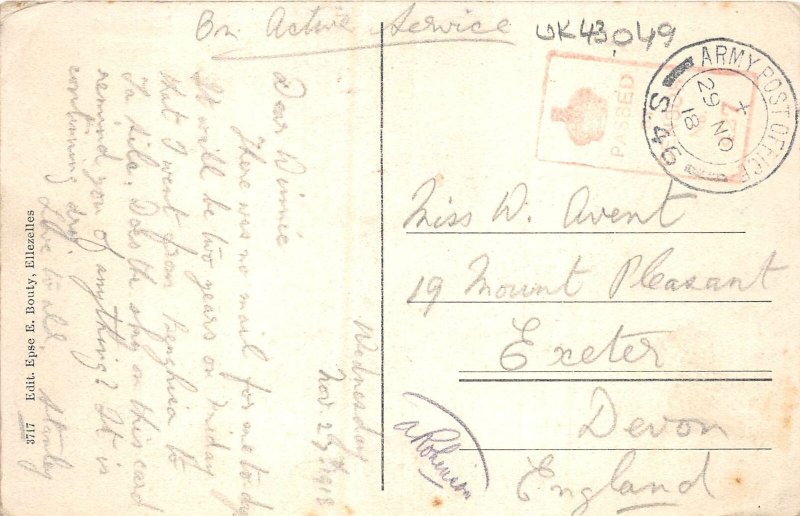 On Active Service
UK43049
Wednesday
Nov. 27th 1918
Dear Winnie
There was no mail for me to-day
It will be two years on Friday
that I went from to
Does the on this card
remind you of anything? It is
continuing dry.
Love to all. Stanley
3717 Edit. Epse E. Bouty, Ellezelles
PASSED
ARMY POST OFFICE
S.49
+
29 NO
18
Miss W. Avent
19 Mount Pleasant
Exeter
Devon
England
A Robinson